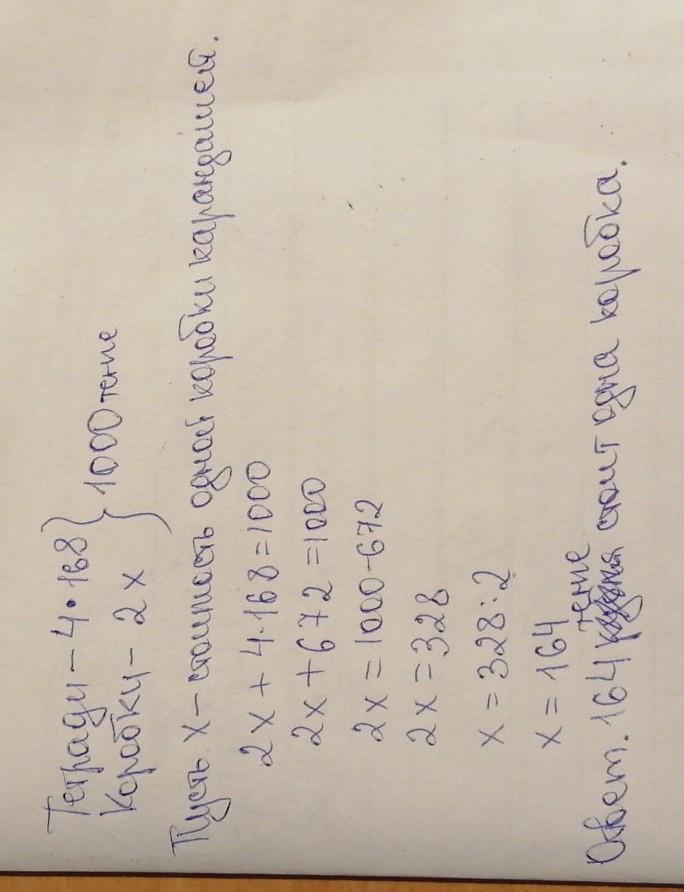 Тетради - 4·168 } 1000 тенге
Коробки - 2 x
Пусть x - стоимость одной коробки карандашей.
2x + 4·168 = 1000
2x + 672 = 1000
2x = 1000-672
2x = 328
x = 328:2
x = 164
Ответ. 164 тенге стоит одна коробка.